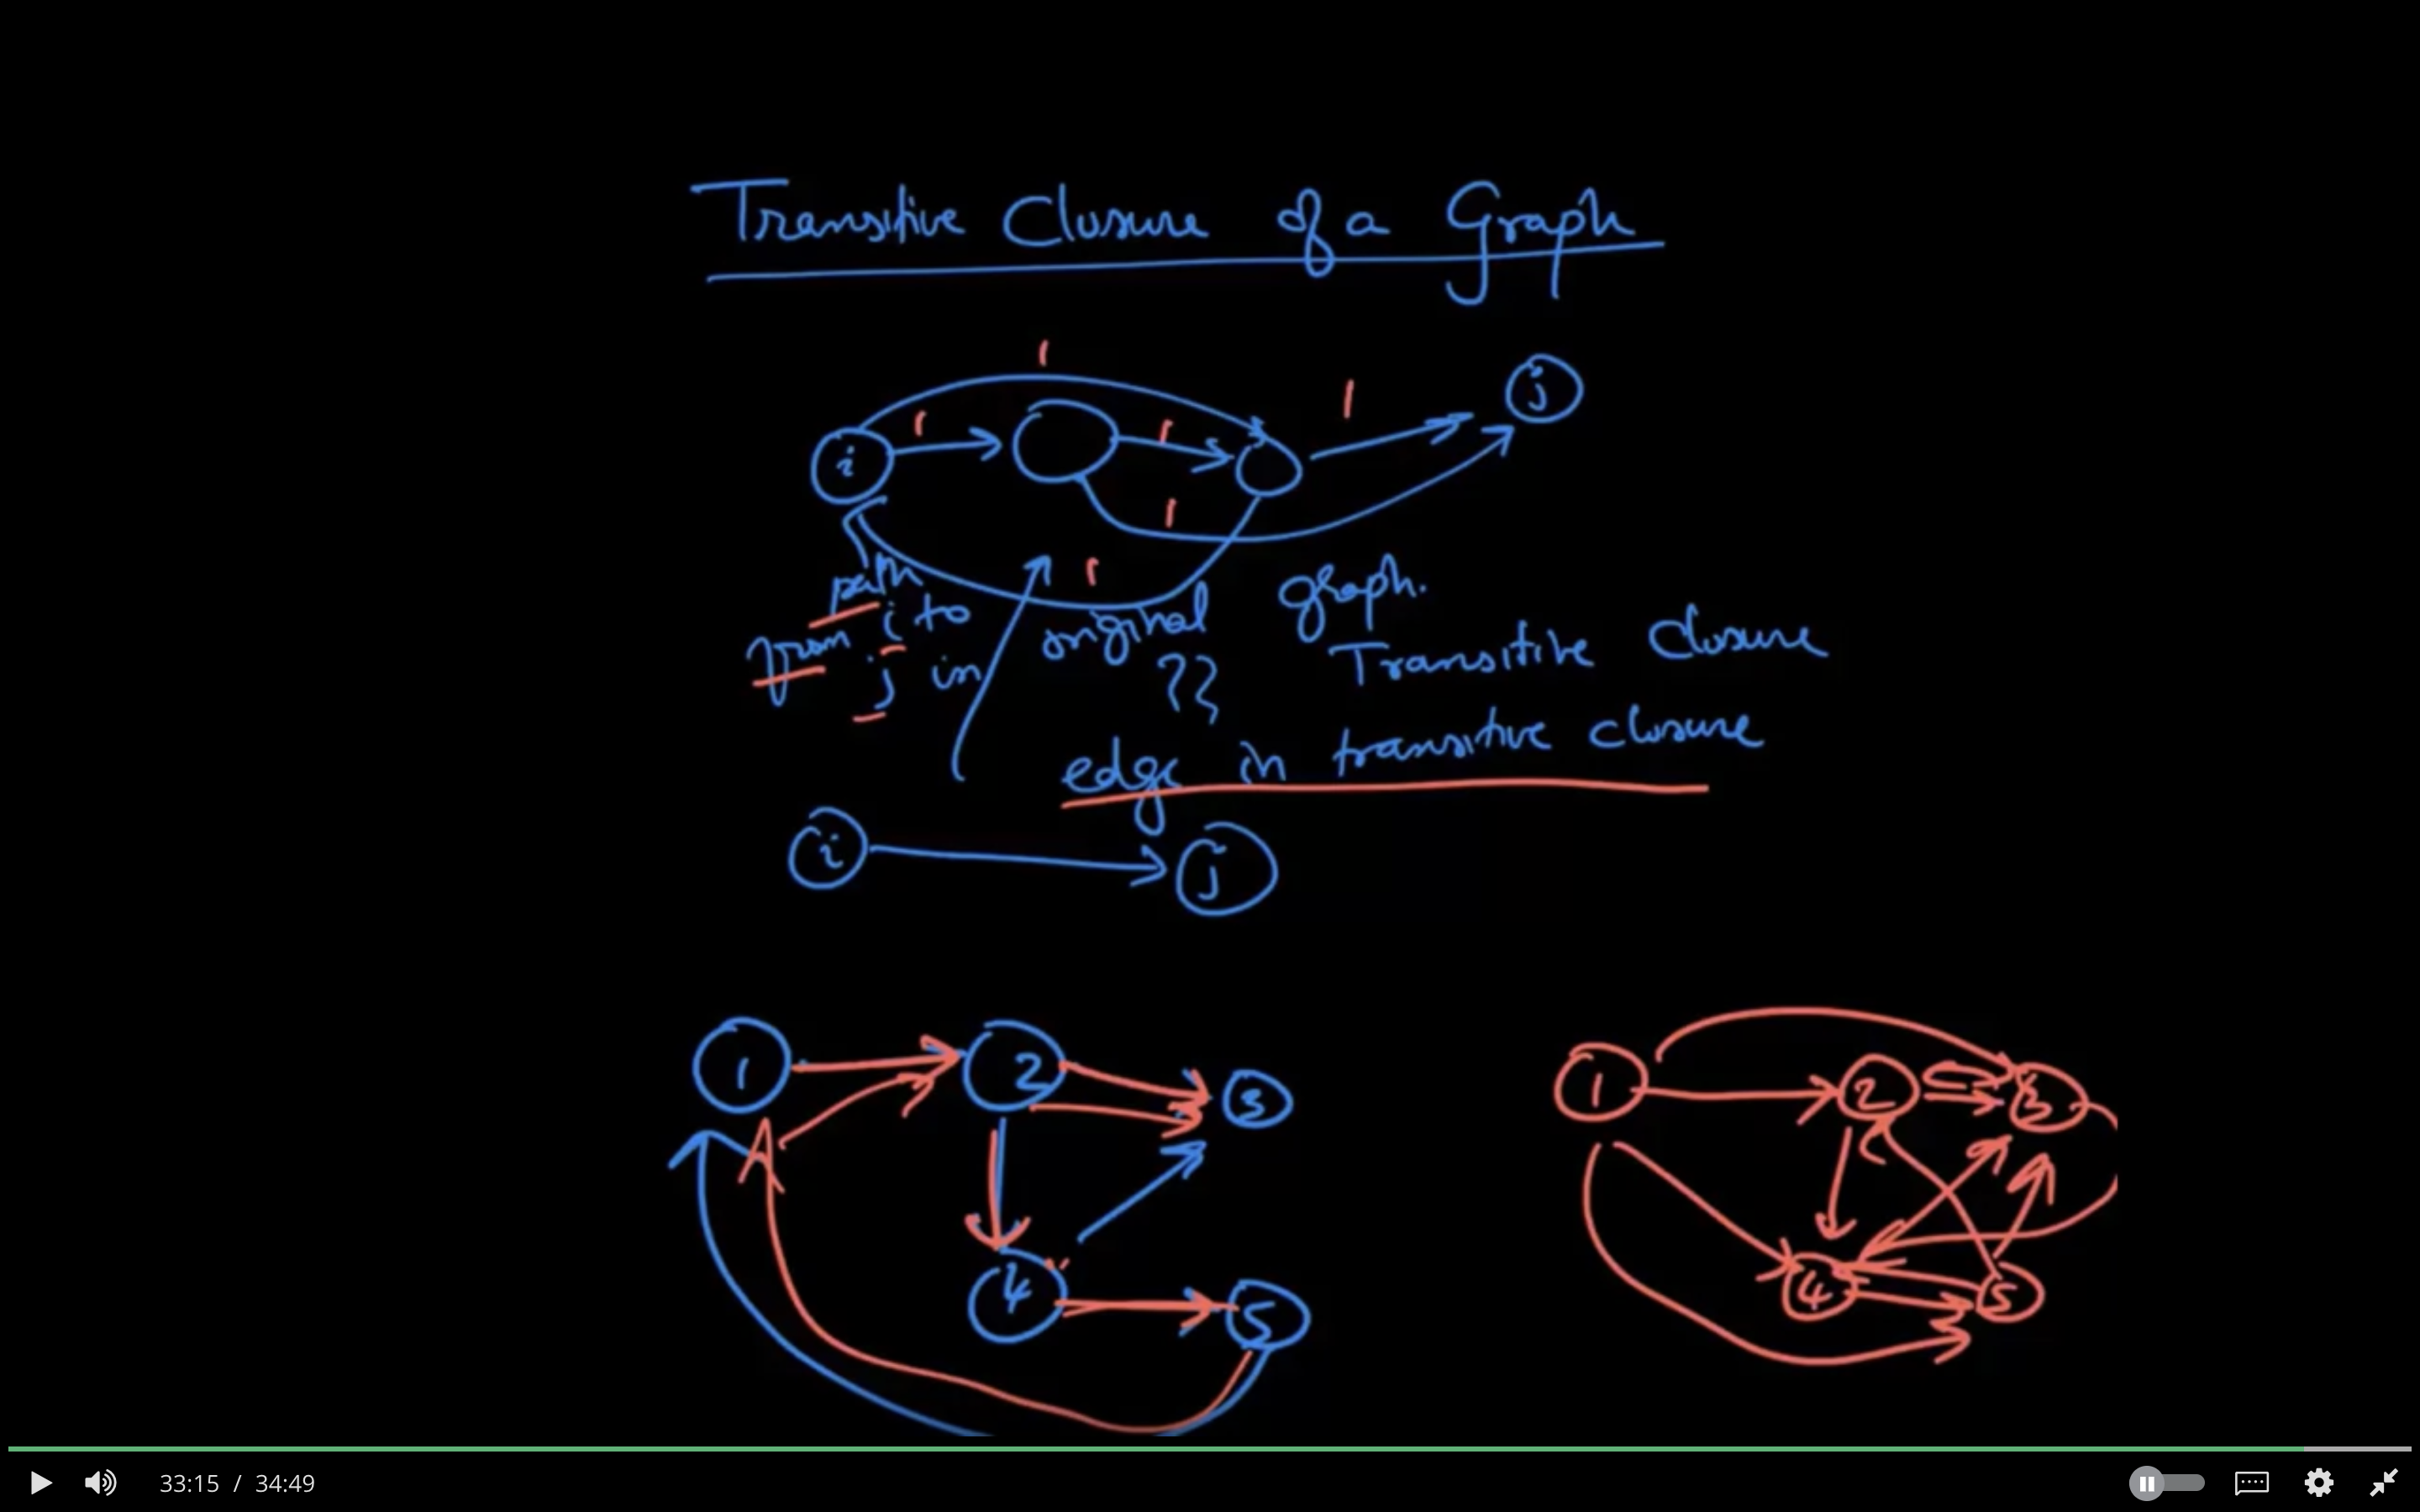 Transitive Closure of a Graph
1
1
1
1
j
i
1
1
path
from i to
j in
original
graph.
??
Transitive closure
edge in transitive closure
i
j
1
2
3
4
5
1
2
3
4
5
33:15 / 34:49